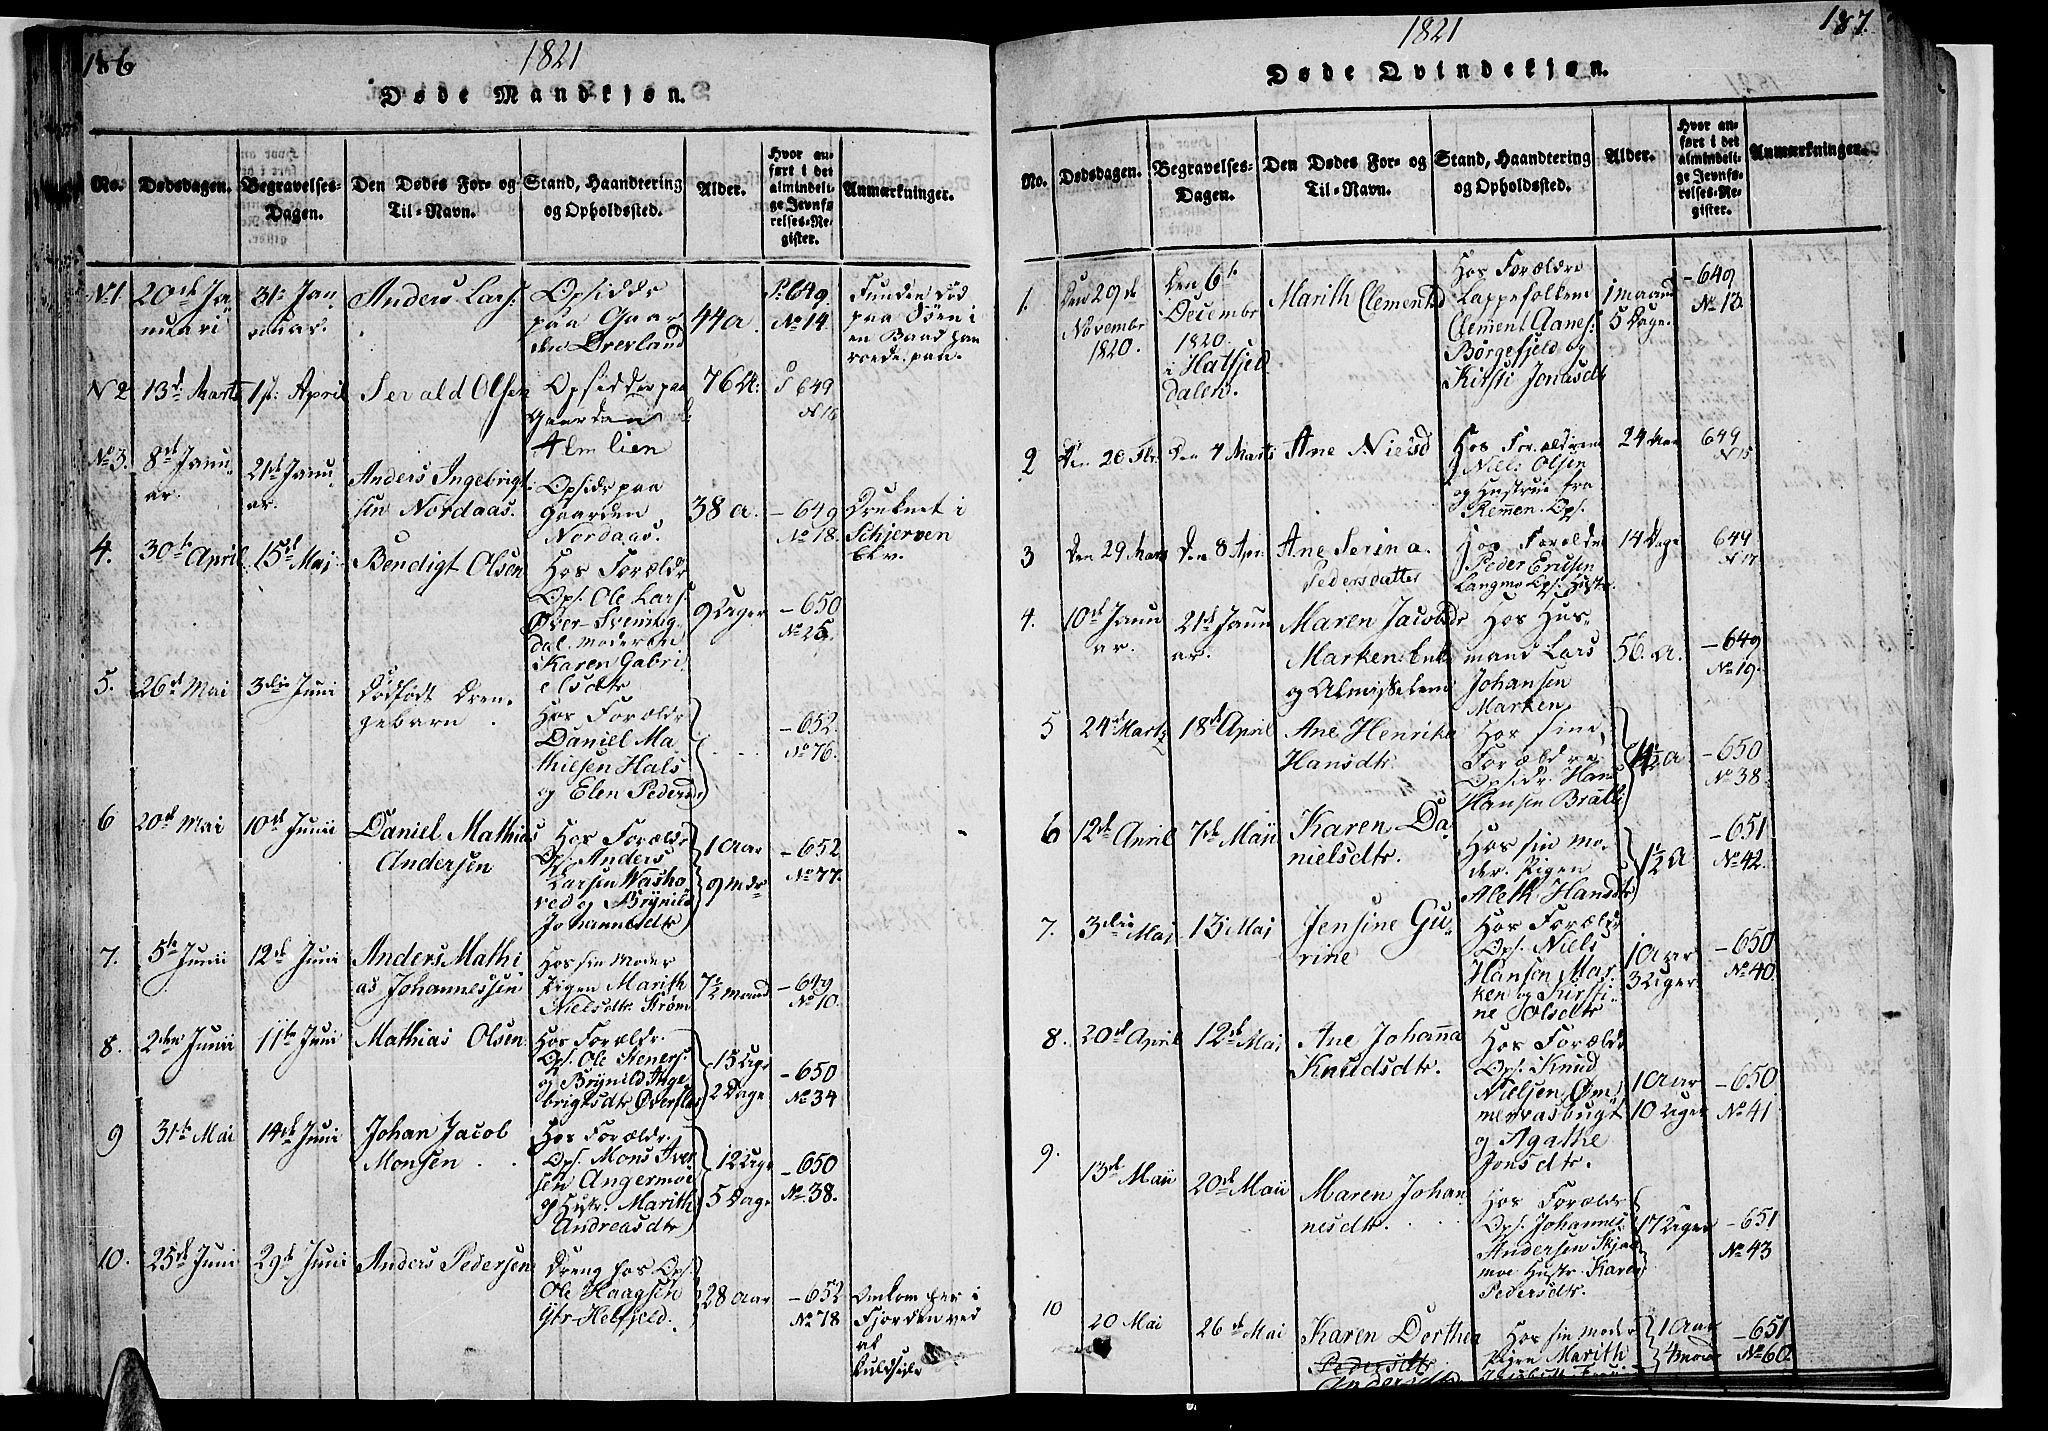 186
1821
Døde Mandkjøn.
No.
Dødsdagen.
Begravelses-
Dagen.
Den Dødes For- og
Til-Navn.
Stand, Haandtering
og Opholdssted.
Alder.
Hvor an-
ført i det
almindeli-
ge Jevnfø-
relses-Re-
gister.
Anmærkninger.
No 1.
20de Ja
nuari
31te Jan
nuar.
Anders Lars:
Opsidder
paa Gaar
den Øverland
44 a.
P. 649.
No 14.
Funden død
paa Søen i
en Baad han
roede paa.
N 2
13de Marts
1ste April
Serald Olsen
Opsidder paa
Gaarden
Almlien
76 A:
P 649
N 16
No 3.
8de Janu
ar.
21de Janu
ar.
Anders Ingebrigt
sen Nordaas.
Opsidr paa
Gaarden
Nordaas.
38 a.
- 649
No 18.
Druknet i
Schjerven
Elv.
4.
30te April
15de Maj
Bendigt Olsen
Hos Forældr
Ops. Ole Lars
Øver-Svenning
dal. Moderen
Karen Gabri
elsdtr
9 Uger
- 650
No 25.
5.
26de Mai
3die Juni
Dødfødt Dren-
gebarn.
Hos Forældr
Daniel Ma
thiesen Hals
og Elen Pedersd
- 652
No 76.
6
20de Mai
10de Junii
Daniel Mathias
Andersen
Hos Forældr
Ops. Anders
Larsen
og Brynild
Johannesdtr
1 Aar
9 Mdr
- 652
No 77.
7.
5te Junii
12de Juni
Anders Mathi
as Johannessen
Hos sin Moder
Pigen Marith
Nielsdtr Strøm
7 1/2 Maand
- 649
No 10.
8.
2den Junii
11te Juni
Mathias Olsen
Hos Forældr.
Ops. Ole
og Brynild Inge
brigtsdtr
13 Uger
2 Dage
- 650
No 34
9
31te Mai
14de Juni
Johan Jacob
Monsen
Hos Forældr.
Ops. Mons Iver
sen Angermoe
og Hustr. Marith
Andreasdtr
12 Uge
5 Dage
- 650
No 38.
10.
25de Juni
29de Juni
Anders Pedersen
Dreng hos Ops.
Ole Haagsen
Yttr-Helfjeld.
28 Aar
- 652
No 78
Omkom her i
Fjorden ved
at
Kuldseile
187.
1821
Døde Qvindekjøn.
No.
Dødsdagen.
Begravelses-
Dagen.
Den Dødes For- og
Til-Navn.
Stand, Haandtering
og Opholdssted.
Alder.
Hvor an-
ført i det
almindeli-
ge Jevnfø-
relses-Re-
gister.
Anmærkninger.
1.
Den 29de
Novembr
1820.
Den 6te
Decembr
1820.
i Hatfjeld
dalen.
Marith Clementsd
Hos Forældre
Lappefolkene
Clement Aanes:
Børgefjeld og
Kirsti Jonasdtr
1 maand
5 Dage.
- 649
No 13.
2
Den 20 Fbr.
Den 4 Marts
Ane Nielsd
Hos Forældrene
Niels Olsen
og Hustrue fra
Remen. Ops.
24
649
N 15
3
Den 29 Mars
Den 8 Apr.
Ane Serina.
Pedersdatter
Hos Forældre
Peder Ericsen
Langmo Ops. Hustr.
14 Dage
649
N 17
4.
10de Janu
ar.
21de Janu
ar.
Maren Jacobsdr
Marken Enke
og Almisselem
Hos Hus-
mand Lars
Johansen
Marken
56. a.
- 649
No 19.
5
24de Marts
18de April
Ane Henrika
Hansdtr.
Hos sine
Forældre
Opsidr. Hans
Hansen
4 1/2 a
- 650
No 38.
6
12de April
7de Maii
Karen Da
nielsdtr.
Hos sin Mo-
der. Pigen
Aleth Hansdtr
1 1/2 a
- 651
No 42.
7.
3die Maj
13 Maj
Jensine Gu-
rine
Hos Forældr
Ops. Niels
Hansen Mar
ken og Kirsti-
ne Olsdtr
1 Aar
3 Uger
- 650
No 40
8.
20de April
12de Mai
Ane Johanna
Knudsdtr.
Hos Forældr
Ops. Knud
Nielsen Øm
mervasbugt
og Agathe
Jonsdtr.
1 Aar
10 Uger
- 650
No 41
9.
13de Maii
20de Maii
Maren Johan
nesdtr.
Hos Forældr
Ops. Johannes
Andersen Skjaa
moe Hustr Karen
Pedersdtr.
17 Uger
- 651
No 43
10
20 Mai
26de Mai
Karen Dorthea
Pedersdtr
Andersdtr
Hos sin Moder
Pigen Marith
1 Aar
4 Moar
- 651
No 60.